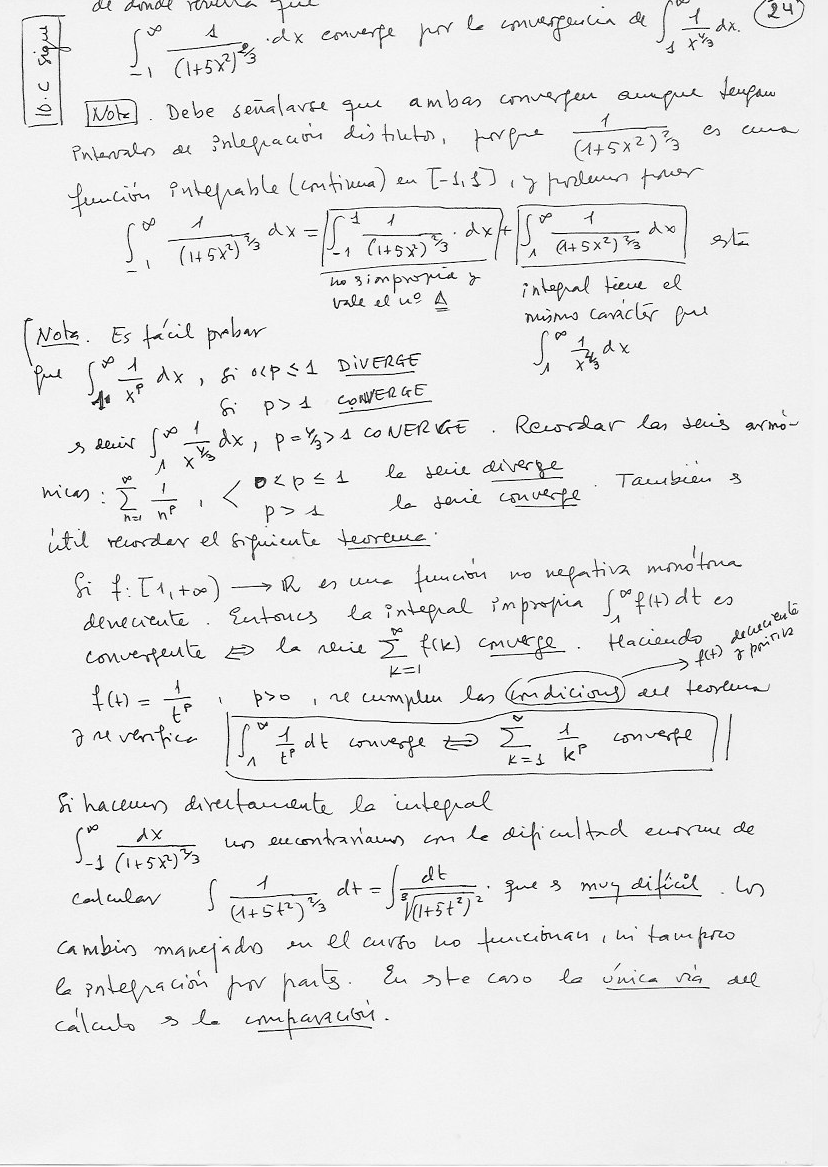 de donde resulta que
24
10.C Sigue
∫_{-1}^{∞} 1/(1+5x²)^{2/3} · dx converge por la convergencia de ∫_1^∞ 1/x^{4/3} dx.
Nota. Debe señalarse que ambas convergen aunque tengan
intervalos de integración distintos, porque 1/(1+5x²)^{2/3} es una
función integrable (continua) en [-1,1], y podemos poner
∫_{-1}^{∞} 1/(1+5x²)^{2/3} dx = ∫_{-1}^{1} 1/(1+5x²)^{2/3} · dx + ∫_1^∞ 1/(1+5x²)^{2/3} dx esta
no s impropia y
vale el nº Δ
integral tiene el
mismo carácter que
∫_1^∞ 1/x^{4/3} dx
Nota. Es fácil probar
que ∫_1^∞ 1/x^p dx, si 0<p≤1 DIVERGE
si p>1 CONVERGE
s decir ∫_1^∞ 1/x^{4/3} dx, p=4/3>1 CONERGE. Recordar las seris armó-
nicas: ∑_{n=1}^{∞} 1/n^p, < 0<p≤1 la serie diverge
p>1 la serie converge. También s
útil recordar el siguiente teorema:
Si f: [1,+∞) → ℝ es una función no negativa monótona
decreciente. Entoncs la integral impropia ∫_1^∞ f(t) dt es
convergente ⟺ la serie ∑_{k=1}^{∞} f(k) converge. Haciendo
f(t) decreciente
y positiva
f(t) = 1/t^p, p>0, se cumplen las condicions del teorema
y se verifica ∫_1^∞ 1/t^p dt converge ⟺ ∑_{k=1}^{∞} 1/k^p converge
Si hacemos directamente la integral
∫_{-1}^{∞} dx/(1+5x²)^{2/3} nos encontraríamos con la dificultad enorme de
calcular ∫ 1/(1+5t²)^{2/3} dt = ∫ dt/∛(1+5t²)². que s muy difícil. Los
cambios manejados en el curso no funcionan, ni tampoco
la integración por parts. En ste caso la única vía del
cálculo s la comparación.